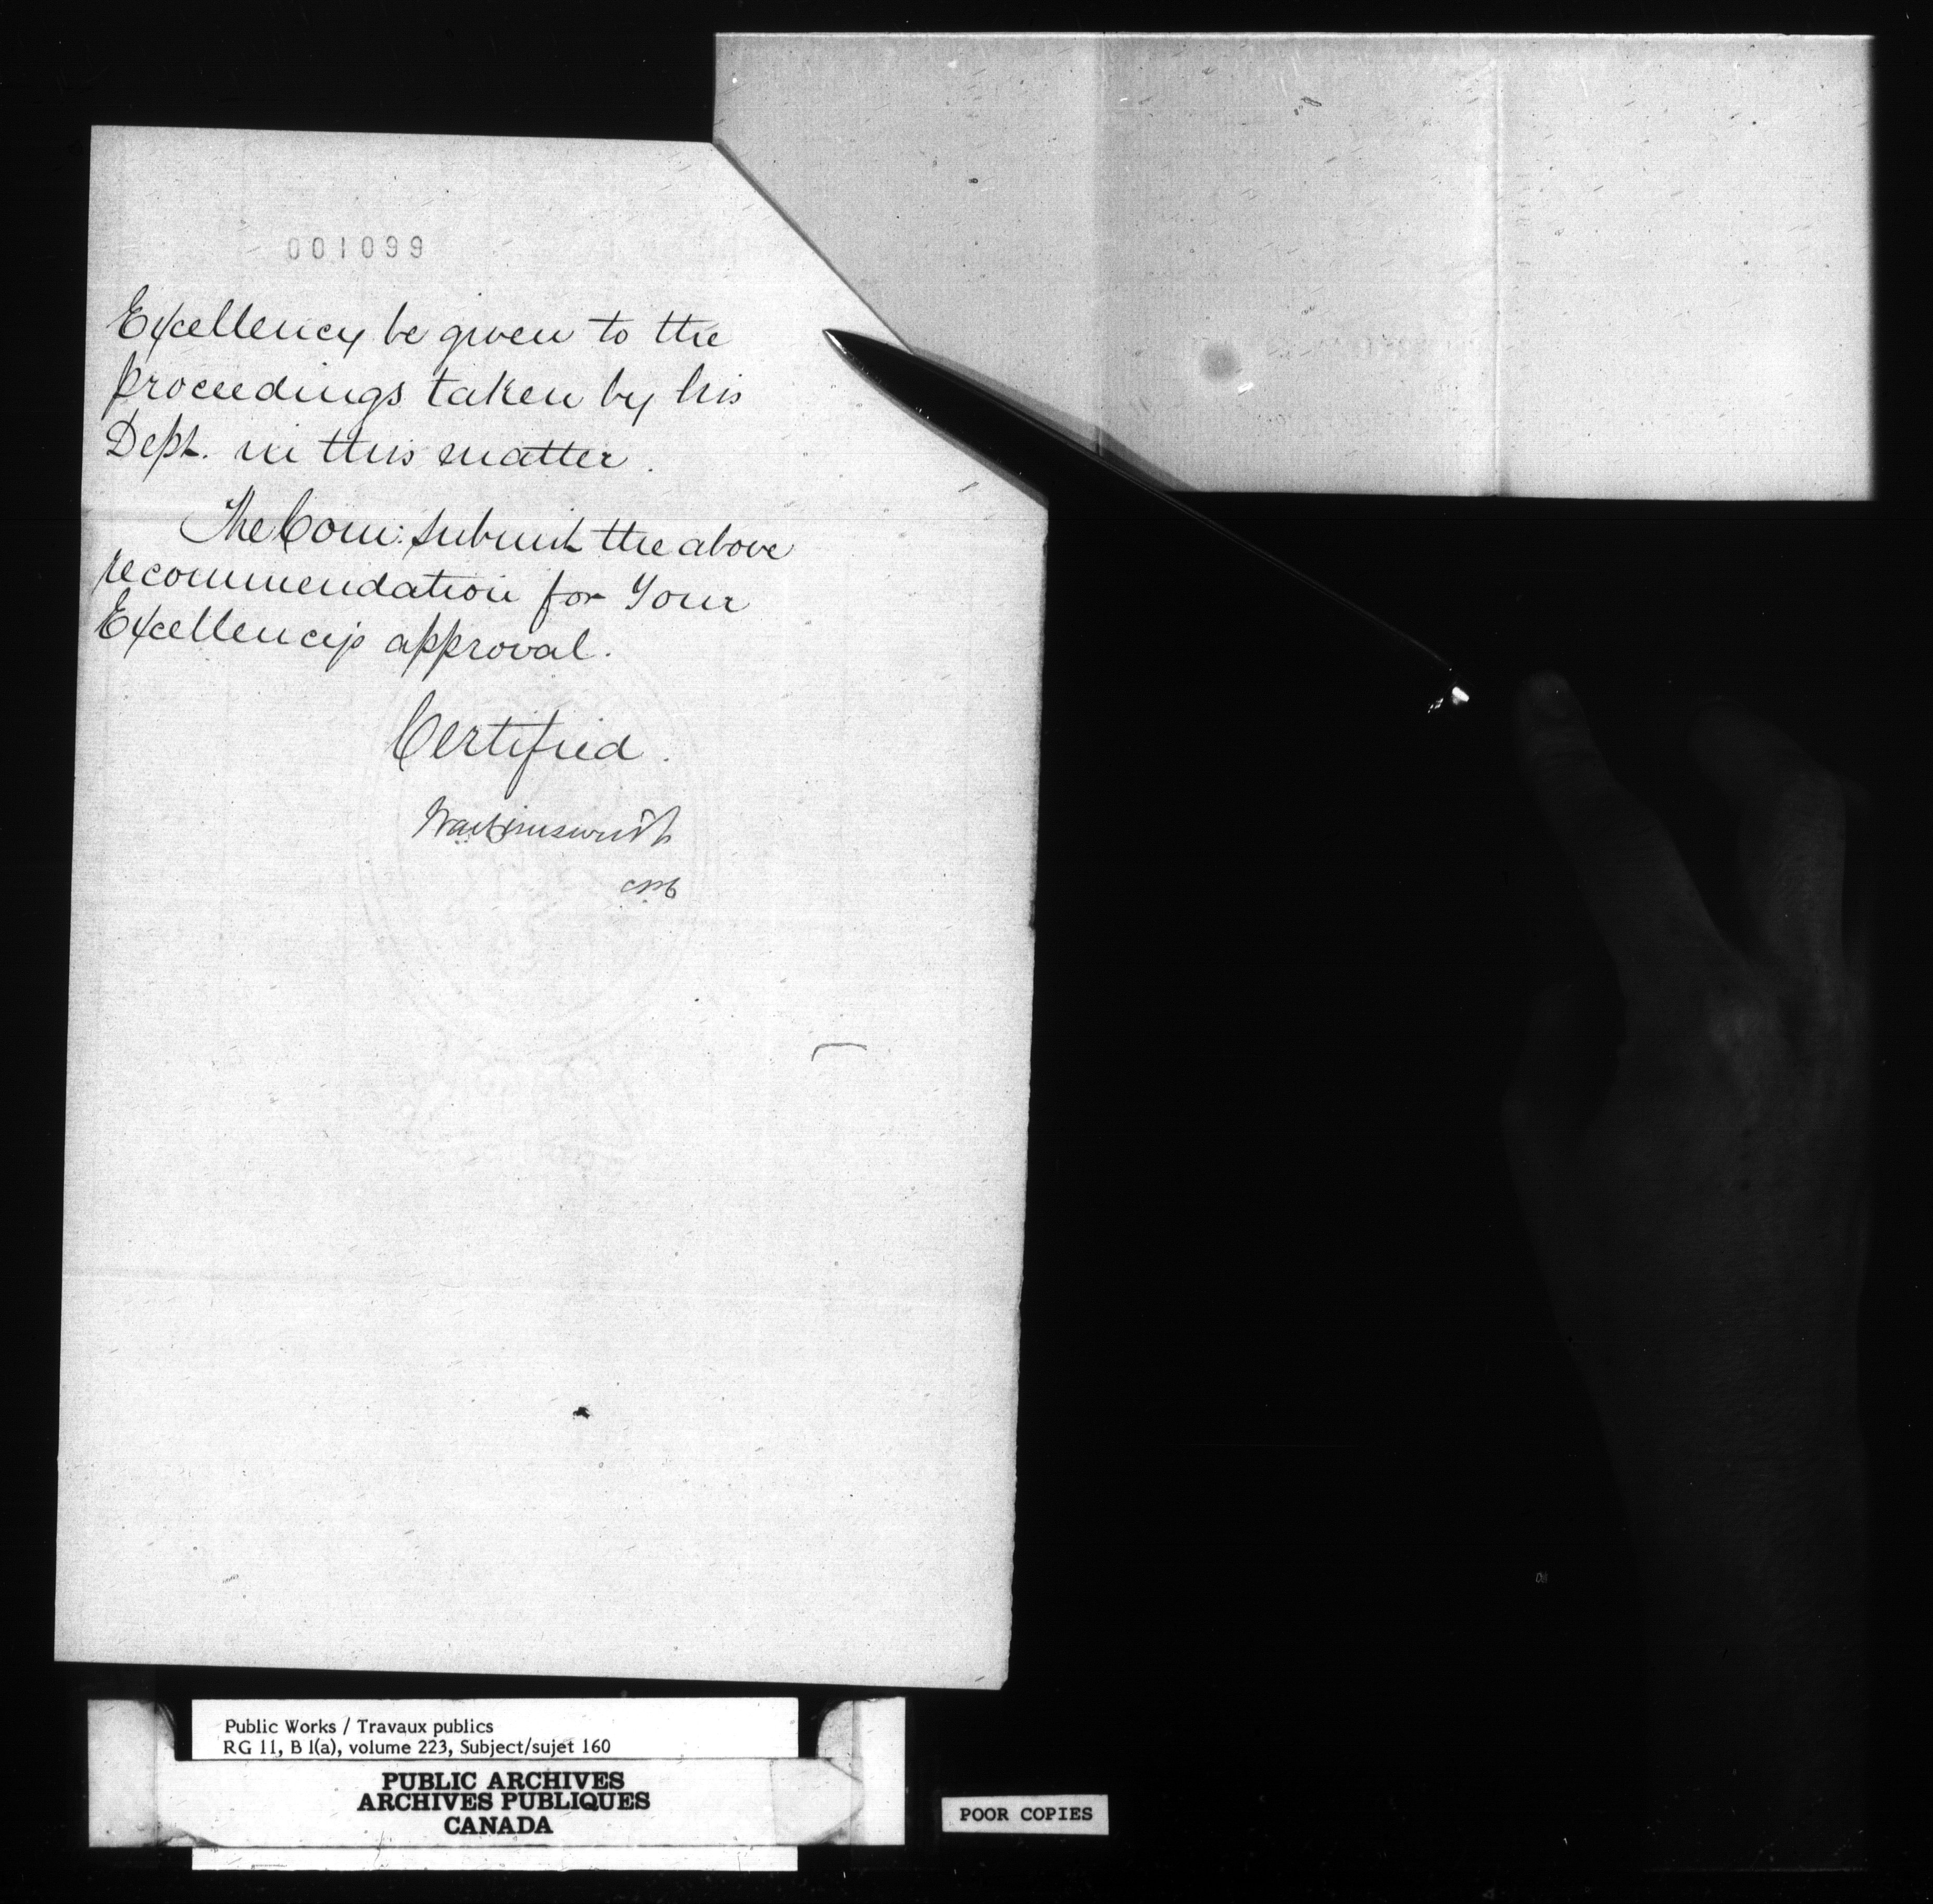 001099
Excellency be given to the
proceedings taken by his
Dept. in this matter.
The Com: submit the above
recommendation for Your
Excellency's approval.
Certified.
Public Works / Travaux publics
RG 11, B 1(a), volume 223, Subject/sujet 160
PUBLIC ARCHIVES
ARCHIVES PUBLIQUES
CANADA
POOR COPIES